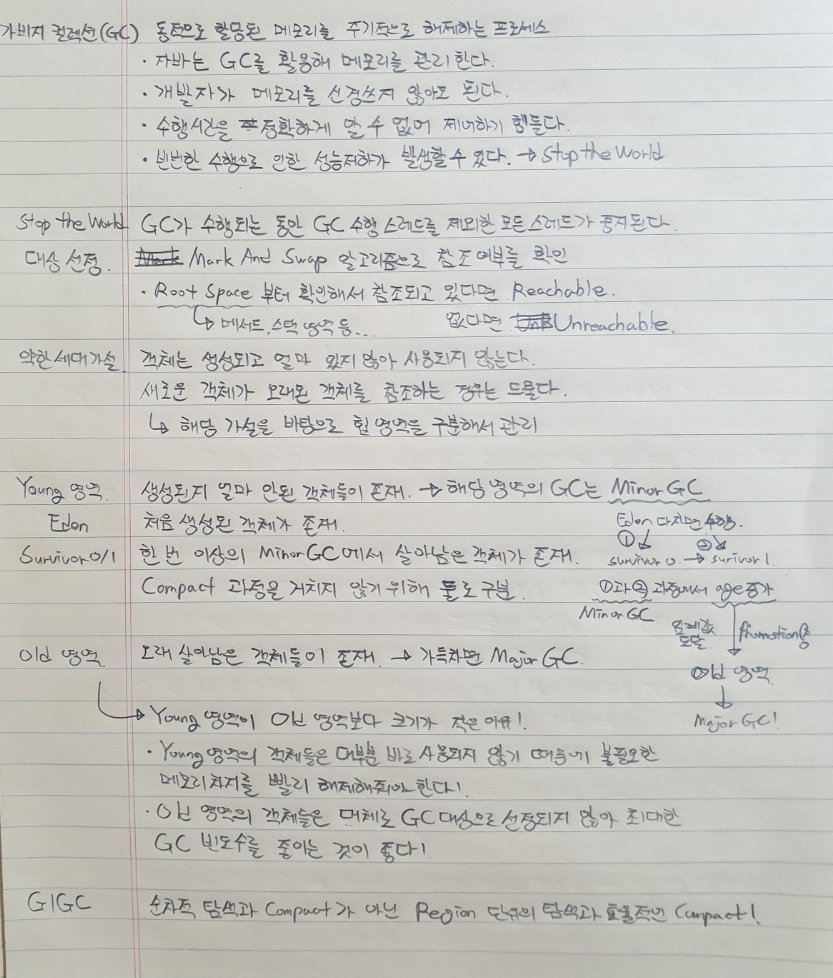 가비지 컬렉션(GC) 동적으로 할당된 메모리를 주기적으로 해제하는 프로세스
· 자바는 GC를 활용해 메모리를 관리한다.
· 개발자가 메모리를 신경쓰지 않아도 된다.
· 수행시간을 정확하게 알 수 없어 제어하기 힘들다.
· 빈번한 수행으로 인한 성능저하가 발생할 수 있다. → Stop the World
Stop the World GC가 수행되는 동안 GC 수행 스레드를 제외한 모든 스레드가 중지된다.
대상 선정. Mark And Swap 알고리즘으로 참조 여부를 확인
· Root Space 부터 확인해서 참조되고 있다면 Reachable.
↳ 메서드, 스택 영역 등... 없다면 Unreachable.
약한 세대 가설. 객체는 생성되고 얼마 있지 않아 사용되지 않는다.
새로운 객체가 오래된 객체를 참조하는 경우는 드물다.
↳ 해당 가설을 바탕으로 힙 영역을 구분해서 관리
Young 영역. 생성된지 얼마 안된 객체들이 존재. → 해당 영역의 GC는 Minor GC
Eden 처음 생성된 객체가 존재. Eden 다치면 수행.
① ②
Survivor 0/1 한 번 이상의 Minor GC에서 살아남은 객체가 존재. survivor 0 → surivor 1.
Compact 과정을 거치지 않기 위해 둘로 구분. ①과 ② 과정에서 age 증가
Minor GC
임계값 도달 Promotion
Old 영역. 오래 살아남은 객체들이 존재. → 가득차면 Major GC.
Old 영역
↳ Young 영역이 Old 영역보다 크기가 작은 이유!. Major GC!
· Young 영역의 객체들은 대부분 바로 사용되지 않기 때문에 불필요한
메모리 차지를 빨리 해제해줘야 한다!
· Old 영역의 객체들은 대체로 GC 대상으로 선정되지 않아 최대한
GC 빈도수를 줄이는 것이 좋다!
G1GC 순차적 탐색과 Compact가 아닌 Region 단위의 탐색과 효율적인 Compact!